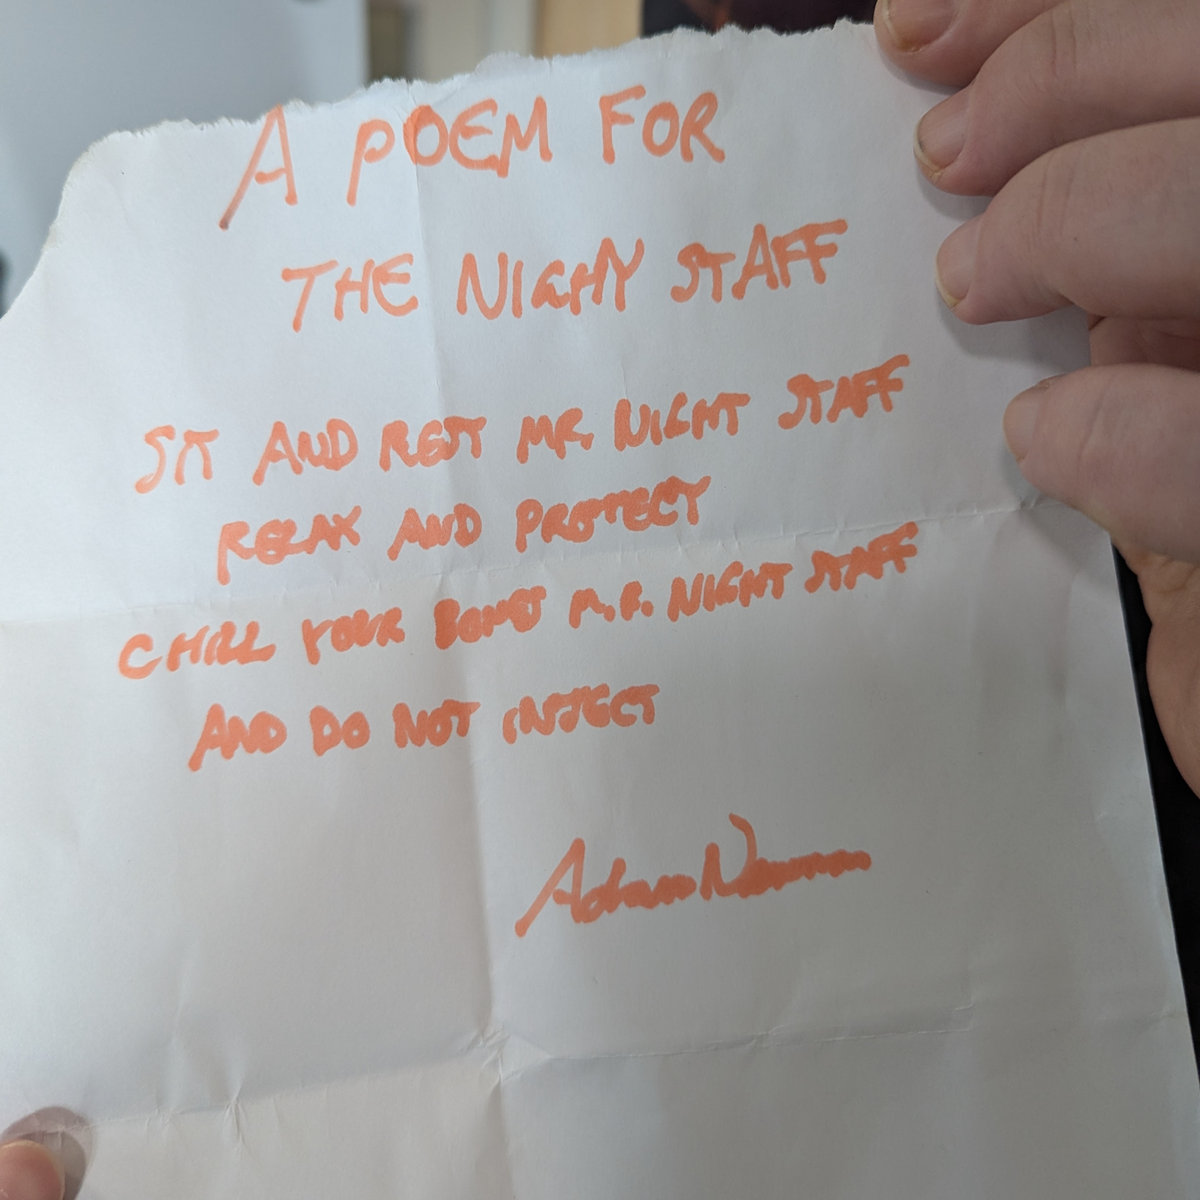 A POEM FOR
THE NIGHT STAFF
SIT AND REST MR. NIGHT STAFF
RELAX AND PROTECT
CHILL YOUR BONES M.R. NIGHT STAFF
AND DO NOT INJECT
Adam Newman